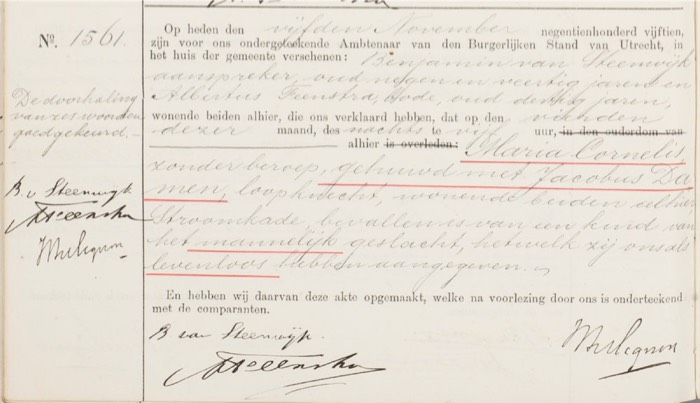 Nº. 1561.
Op heden den vijfden November negentienhonderd vijftien,
zijn voor ons ondergeteekende Ambtenaar van den Burgerlijken Stand van Utrecht, in
het huis der gemeente verschenen: Benjamin van Steenwijk
aanspreker, oud negen en veertig jaren en
Albertus Feenstra, bode, oud dertig jaren,
wonende beiden alhier, die ons verklaard hebben, dat op den vierden
dezer maand, des nachts te vijf uur, in den ouderdom van
alhier is overleden: Maria Cornelis
zonder beroep, gehuwd met Jacobus Da
men, loopknecht, wonende beiden alhier
Stroomkade, bevallen is van een kind van
het mannelijk geslacht, hetwelk zij ons als
levenloos hebben aangegeven.
En hebben wij daarvan deze akte opgemaakt, welke na voorlezing door ons is onderteekend
met de comparanten.
B van Steenwijk.
De doorhaling
van zes woorden
goedgekeurd.
B. v. Steenwijk